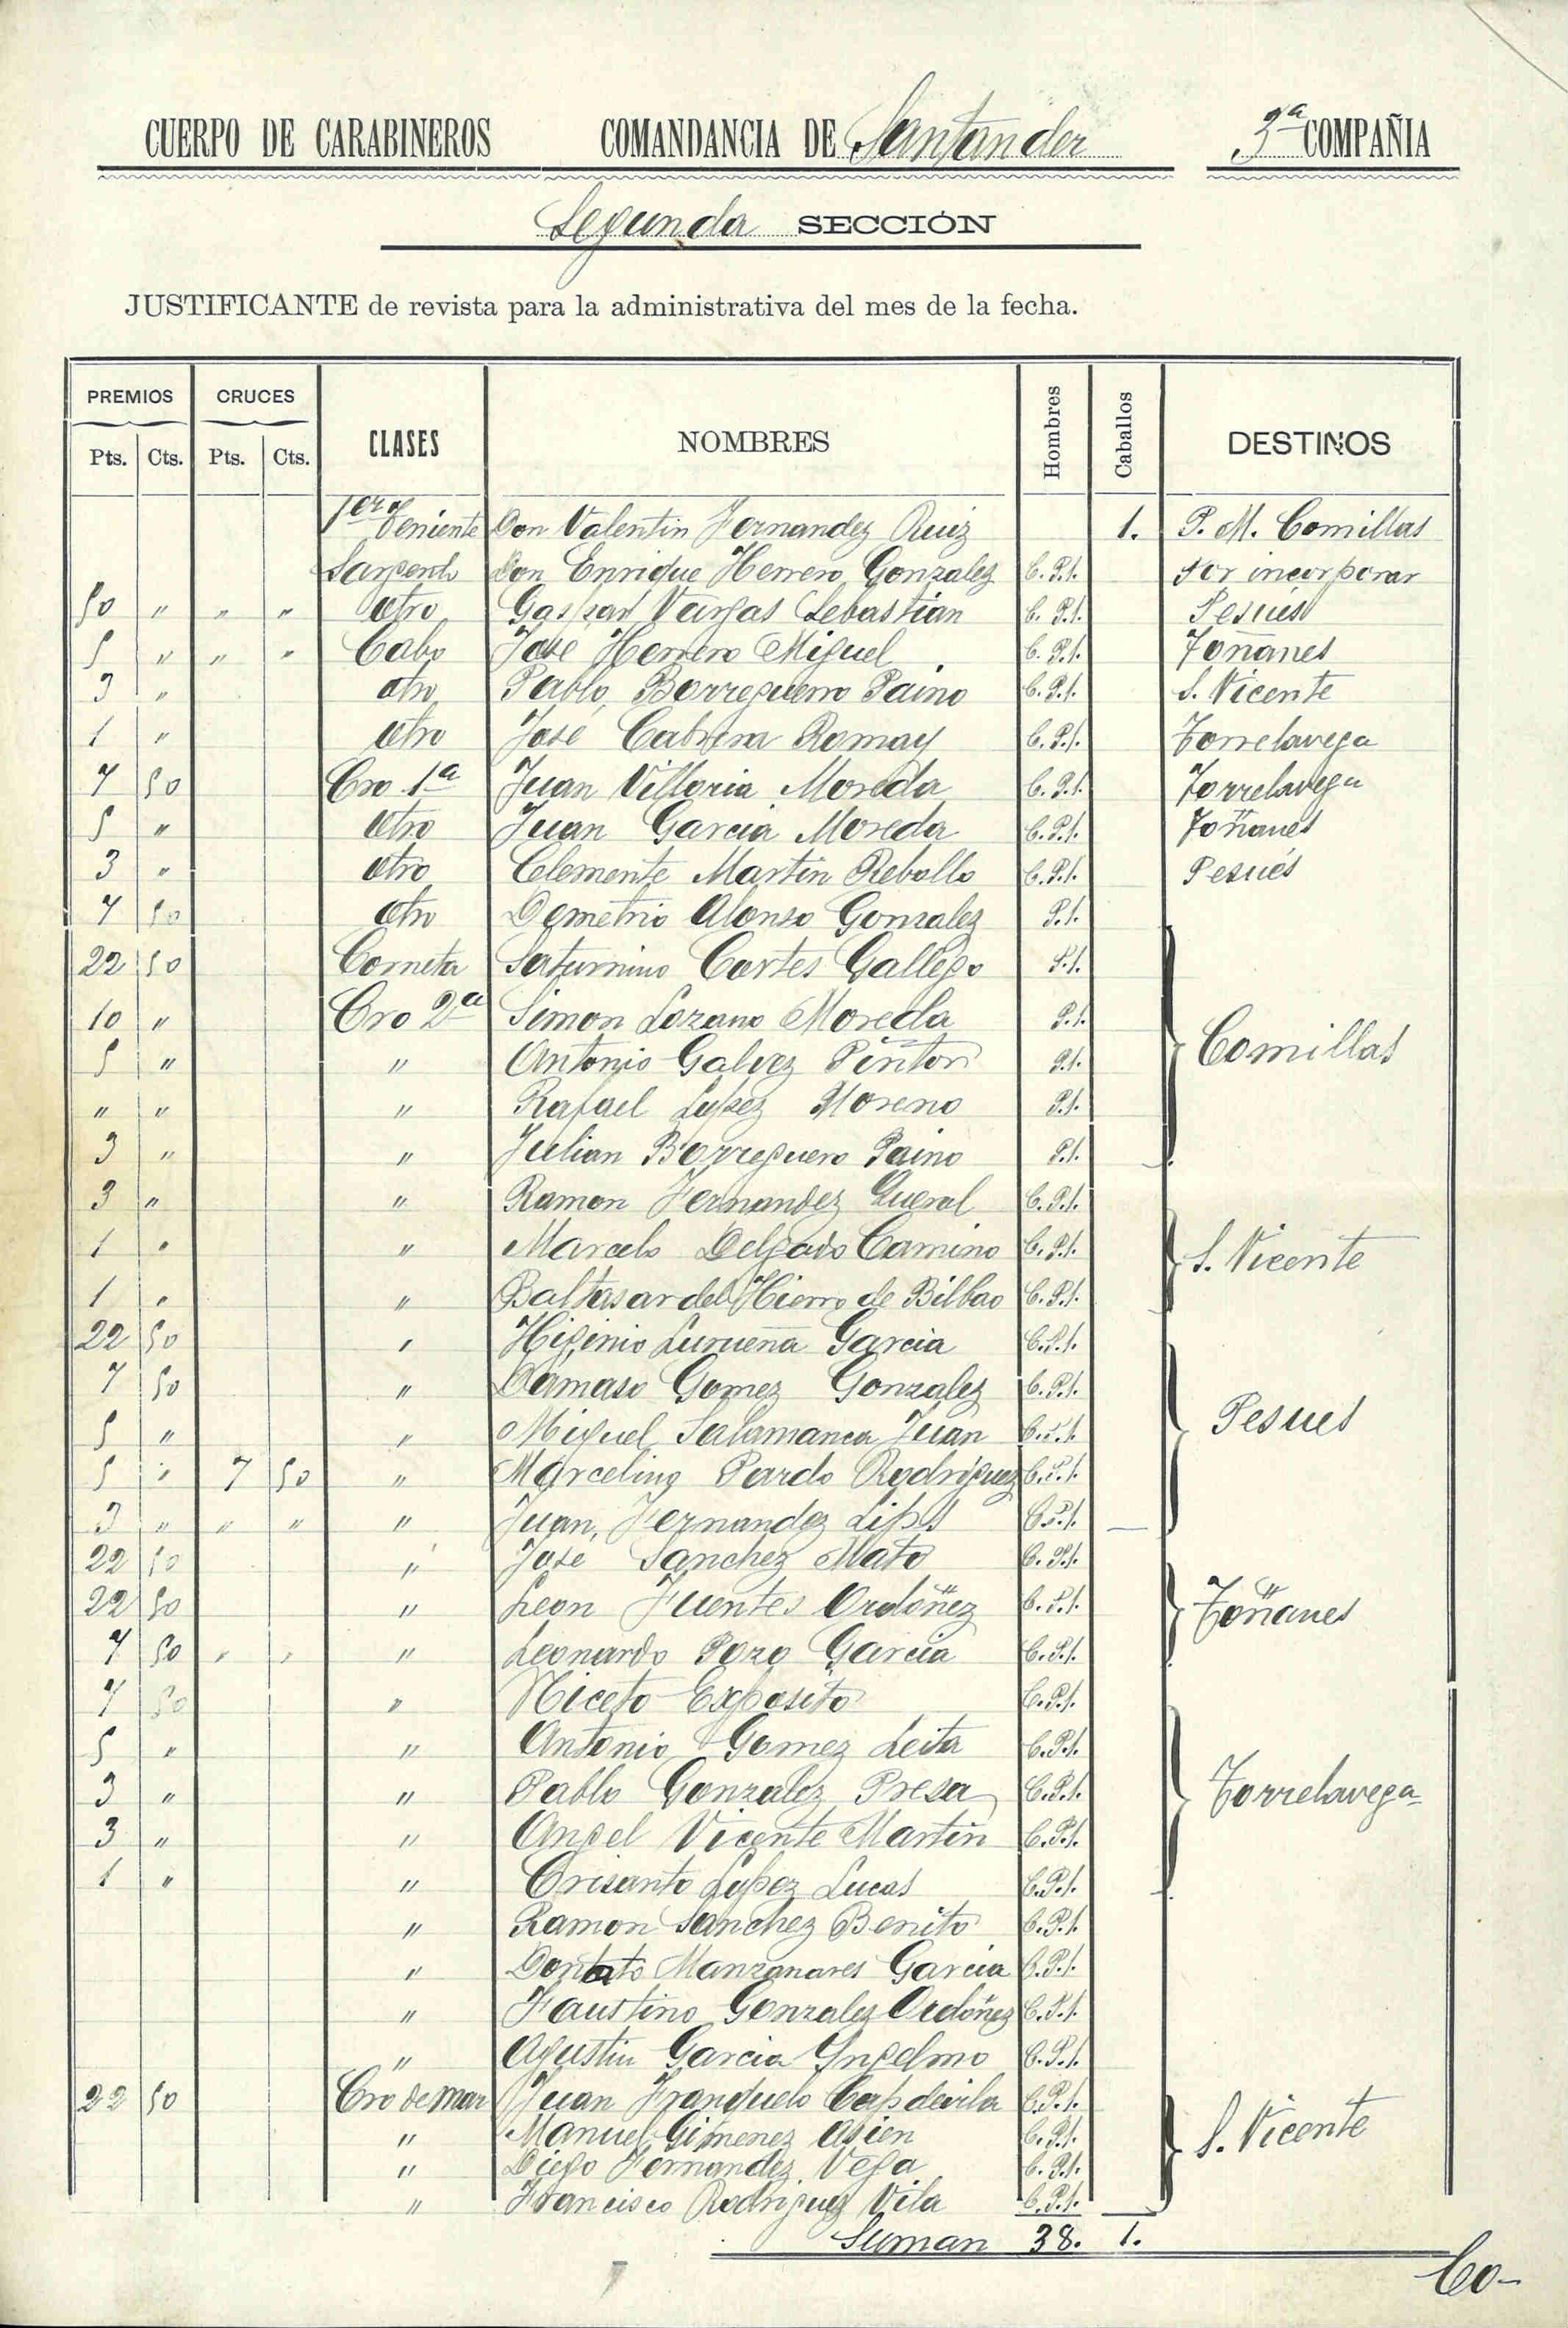 CUERPO DE CARABINEROS COMANDANCIA DE Santander 3ª COMPAÑIA
Segunda SECCIÓN
JUSTIFICANTE de revista para la administrativa del mes de la fecha.
PREMIOS CRUCES CLASES NOMBRES Hombres Caballos DESTINOS
Pts. Cts. Pts. Cts.
1er Teniente Don Valentin Fernandez Ruiz 1. P. M. Comillas
Sargento Don Enrique Herrero Gonzalez C. P. 1. Por incorporar
50 " " " Otro Gaspar Vargas Sebastian C. P. 1. Pesués
5 " " " Cabo José Herrero Miguel C. P. 1. Toñanes
3 " otro Pablo Borreguero Paino C. P. 1. S. Vicente
1 " Otro José Cabrera Romay C. P. 1. Torrelavega
7 50 Cro 1ª Juan Villoria Moreda C. P. 1. Torrelavega
5 " Otro Juan Garcia Moreda C. P. 1. Toñanes
3 " Otro Clemente Martin Rebollo C. P. 1. Pesués
7 50 Otro Demetrio Alonso Gonzalez P. 1.
22 50 Corneta Saturnino Cortes Gallego P. 1.
10 " Cro 2ª Simon Lozano Moreda P. 1. Comillas
5 " " Antonio Galvez Pintor P. 1.
" " " Rafael Lopez Moreno P. 1.
3 " " Julian Borreguero Paino P. 1.
3 " " Ramon Fernandez Queral C. P. 1.
1 " " Marcelo Delgado Camino C. P. 1. S. Vicente
1 " " Baltasar del Hierro de Bilbao C. P. 1.
22 50 " Higinio Lurueña Garcia C. P. 1.
7 50 " Damaso Gomez Gonzalez C. P. 1.
5 " " Miguel Salamanca Juan C. P. 1. Pesues
5 " 7 50 " Marcelino Pardo Rodriguez C. P. 1.
3 " " " " Juan Fernandez C. P. 1.
22 50 " José Sanchez Mato C. P. 1.
22 50 " Leon Fuentes Ordoñez C. P. 1. Toñanes
7 50 " " " Leonardo Pozo Garcia C. P. 1.
7 50 " Niceto Exposito C. P. 1.
5 " " Antonio Gomez Leita C. P. 1.
3 " " Pablo Gonzalez Presa C. P. 1. Torrelavega
3 " " Angel Vicente Martin C. P. 1.
1 " " Crisanto Lopez Lucas C. P. 1.
" Ramon Sanchez Benito C. P. 1.
" Donato Manzanares Garcia C. P. 1.
" Faustino Gonzalez Ordoñez C. P. 1.
" Agustin Garcia Ingelmo C. P. 1.
22 50 Cro de mar Juan Franquelo Capdevila C. P. 1.
" Manuel Gimenez Asien C. P. 1. S. Vicente
" Diego Fernandez Vega C. P. 1.
" Francisco Rodriguez Vila C. P. 1.
Suman 38. 1.
Co-